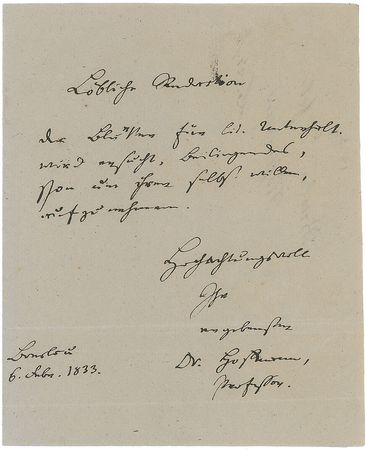 Löbliche Redaction
der Blätter für lit. Unterhalt.
wird ersucht, Beiliegendes,
schon um ihrer selbst willen,
aufzunehmen.
Hochachtungsvoll
Ihr
ergebenster
Dr. Hoffmann,
Professor.
Breslau
6. Febr. 1833.